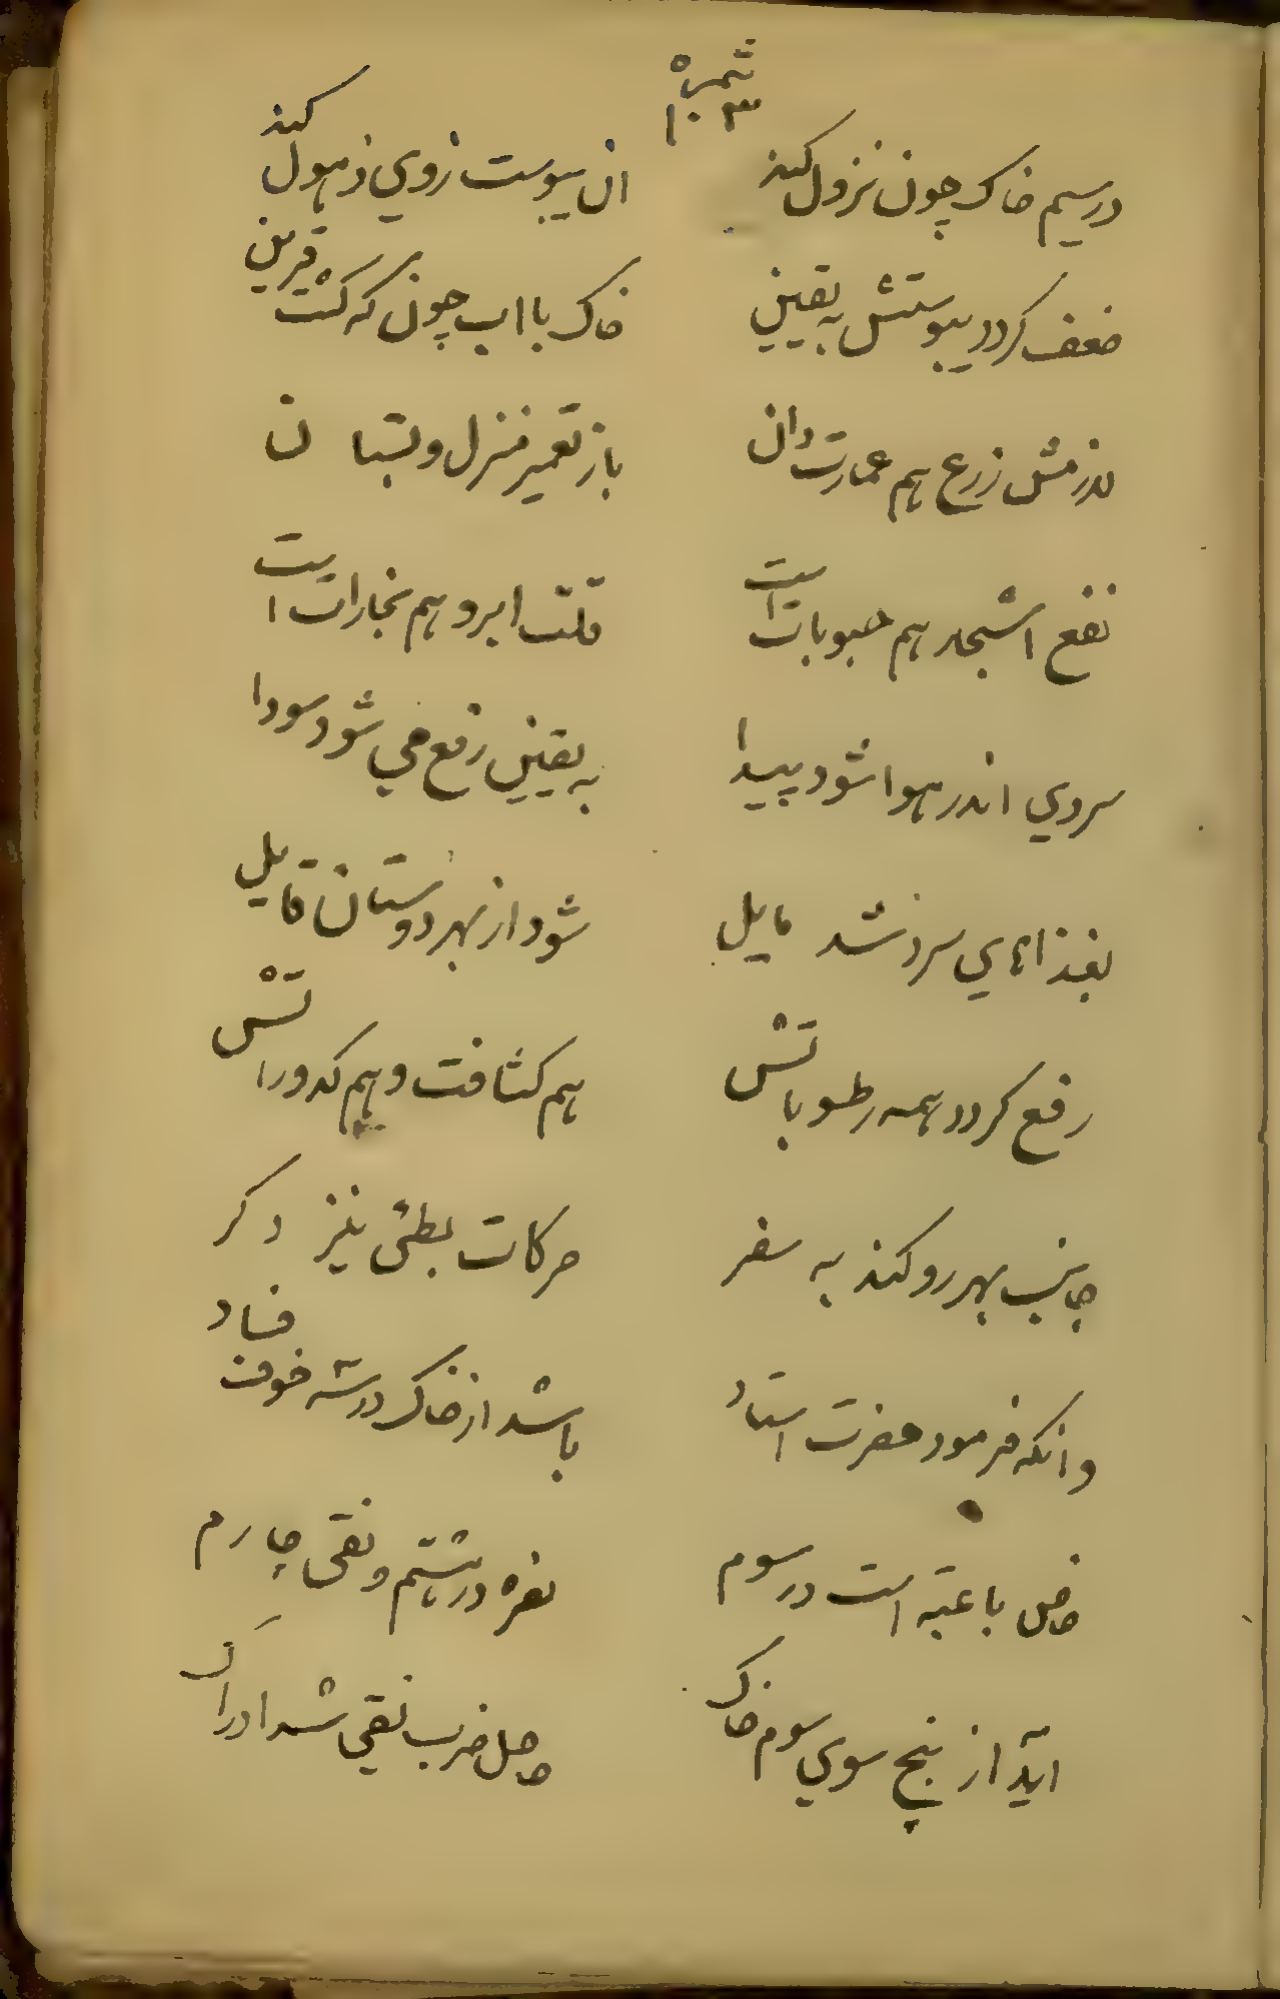 نمره
۱۰۳
در سیم خاک چون نزول کند    ان یبوست زوي ذهول کند
ضعف کردد یبوستش به یقین    خاک با اب چون که کشت قرین
زرع هم عمارت دان    باز تعمیر منزل و بستان
نفع اشجار هم حبوبات است    قلت ابر و هم بخارات است
سردي اندر هوا شود پیدا    به یقین رفع مي شود سودا
بغذاهاي سرد شد مایل    شود از بهر دوستان قایل
رفع کردد همه رطوباتش    هم کثافت و هم کدوراتش
جانب بهر رو کند به سفر    حرکات بطئی نیز دکر
وانکه فرمود حضرت استاد    باشد از خاک در سه خوف فساد
با عتبه است در سوم    نفره در هشتم و نقی چارم
اید از پنج سوي سوم خاک    حاصل ضرب نقي شد ادراک